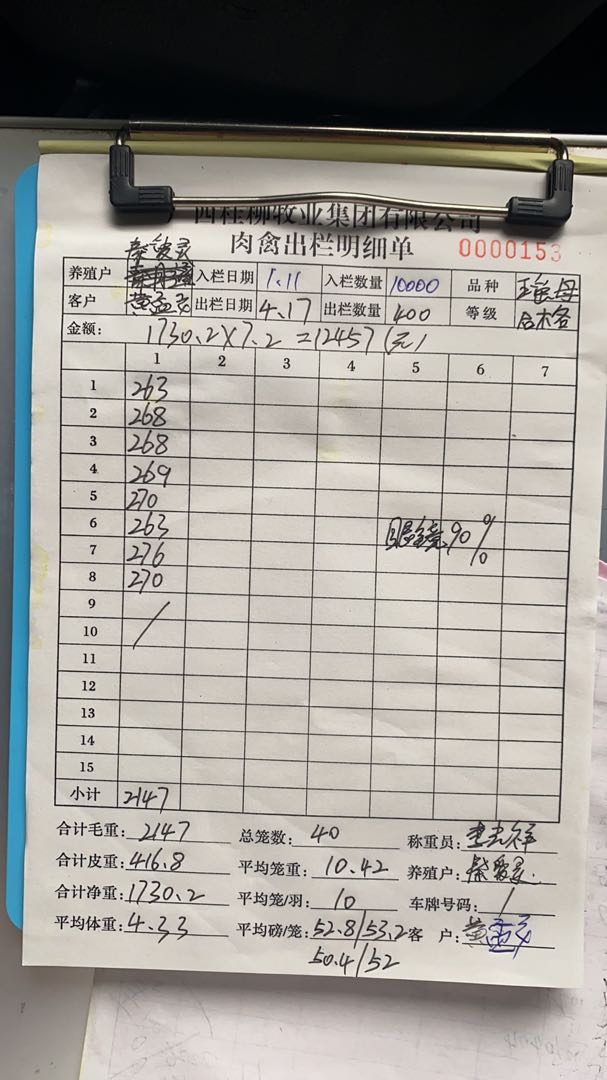 西桂柳牧业集团有限公司
肉禽出栏明细单 0000153
养殖户 入栏日期 1.11 入栏数量 10000 品种
客户 出栏日期 4.17 出栏数量 400 等级 合格
金额: 1730.2×7.2=12457(元)
1 2 3 4 5 6 7
1 263
2 268
3 268
4 269
5 270
6 263 眼镜90%
7 276
8 270
9
10 /
11
12
13
14
15
小计 2147
合计毛重: 2147 总笼数: 40 称重员:
合计皮重: 416.8 平均笼重: 10.42 养殖户:
合计净重: 1730.2 平均笼/羽: 10 车牌号码: /
平均体重: 4.33 平均磅/笼: 52.8/53.2 客户: 黄
50.4/52